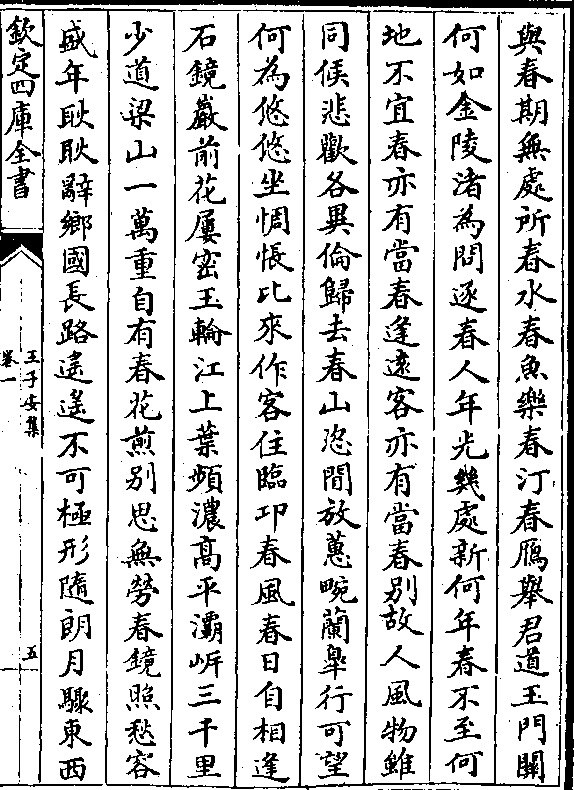 與春期無處所春水春魚樂春汀春鴈舉君道玉門關
何如金陵渚為問逐春人年光幾處新何年春不至何
地不宜春亦有當春逢遠客亦有當春别故人風物雖
同候悲歡各異倫歸去春山恣閒放蕙畹蘭臯行可望
何為悠悠坐惆悵比來作客住臨卭春風春日自相逢
石鏡巖前花屢密玉輪江上葉頻濃高平灞岍三千里
少道梁山一萬重自有春花煎别思無勞春鏡照愁容
盛年耿耿辭鄉國長路遙遙不可極形隨朗月驟東西
欽定四庫全書
王子安集
卷一
五